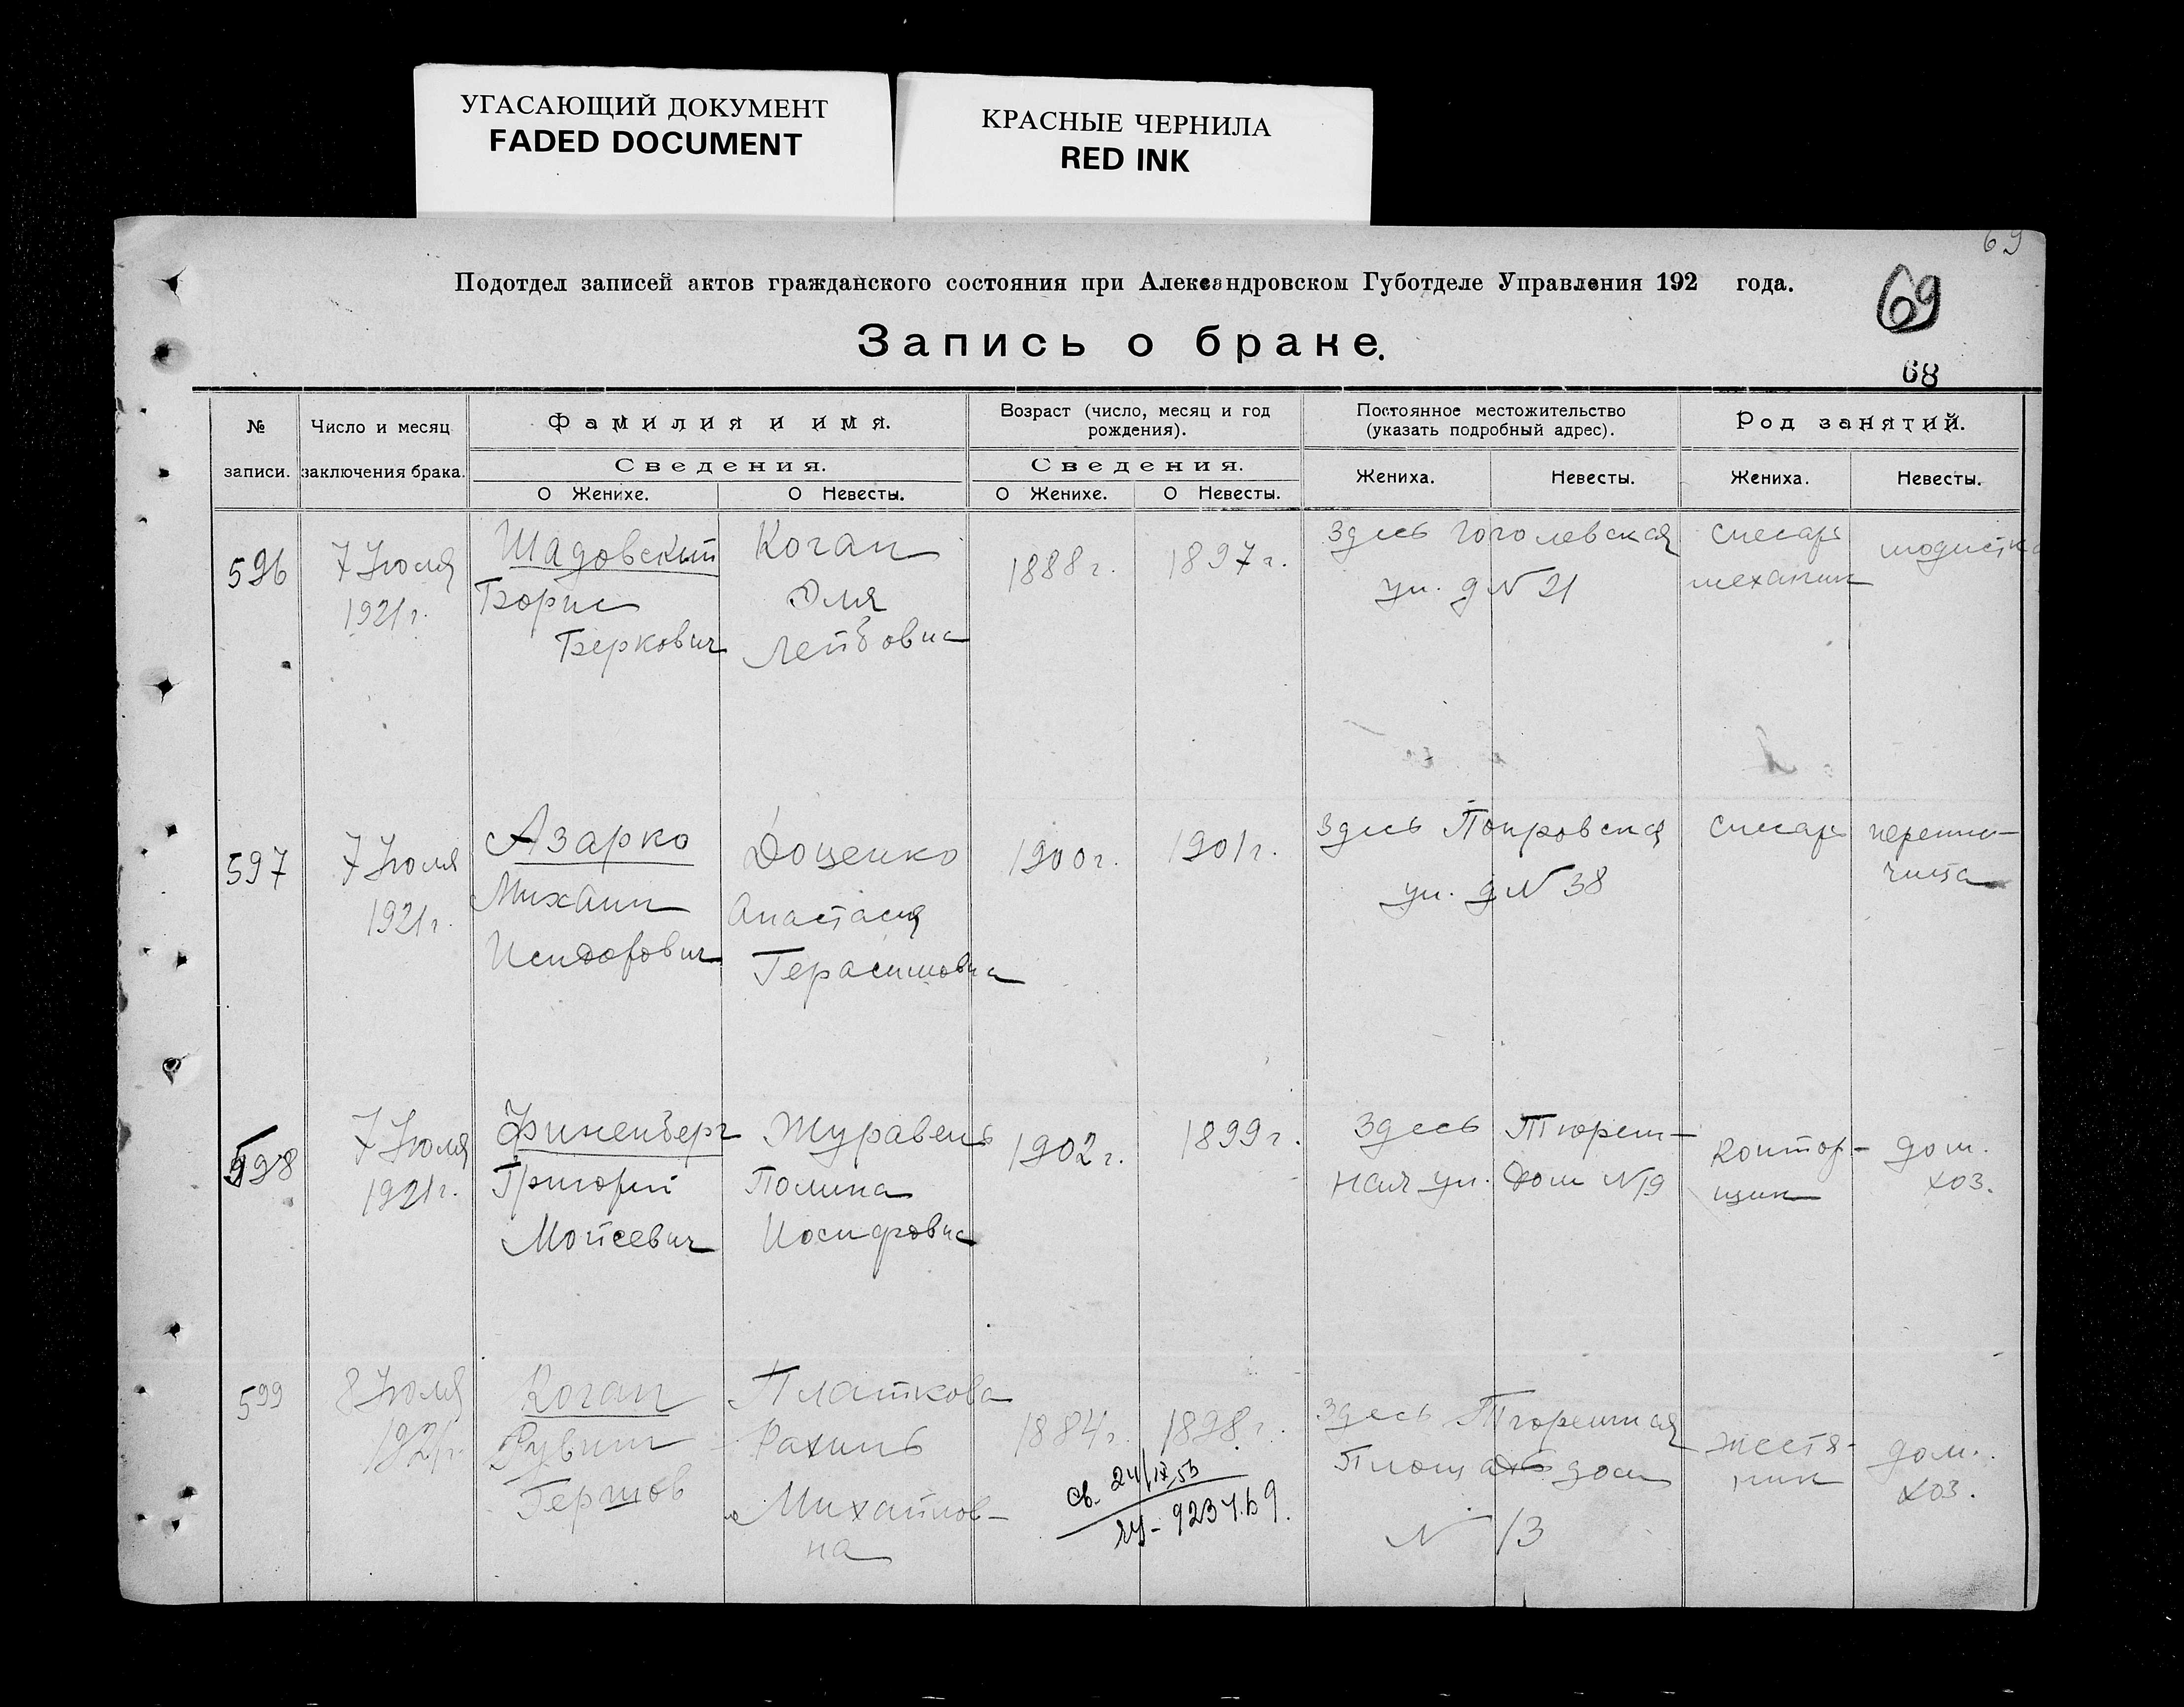 УГАСАЮЩИЙ ДОКУМЕНТ
FADED DOCUMENT
КРАСНЫЕ ЧЕРНИЛА
RED INK
69
Подотдел записей актов гражданского состояния при Александровском Губотделе Управления 192 года.
69
Запись о браке.
68
№ записи.
Число и месяц заключения брака.
Фамилия и имя.
Сведения.
О Женихе.
О Невесты.
Возраст (число, месяц и год рождения).
Сведения.
О Женихе.
О Невесты.
Постоянное местожительство (указать подробный адрес).
Жениха.
Невесты.
Род занятий.
Жениха.
Невесты.
596
7 Июля
1921 г.
Шадовский
Борис
Беркович
Коган
Эля
Лейбовна
1888 г.
1897 г.
Здесь Гоголевская
ул. д № 21
Слесарь
механик
модистка
597
7 Июля
1921 г.
Азарко
Михаил
Исидорович
Доценко
Анастасия
Герасимовна
1900 г.
1901 г.
Здесь Покровская
ул. д № 38
Слесарь
перепис-
чица
598
7 Июля
1921 г.
Финенберг
Григорий
Мойсеевич
Журавель
Полина
Иосифовна
1902 г.
1899 г.
Здесь Тюрем-
ная ул. Дом № 19
Контор-
щик
дом.
хоз.
599
8 Июля
1921 г.
Коган
Рувин
Гершов
Платкова
Рахиль
Михайлов-
на
1884 г.
1898 г.
Здесь Тюремная
Площадь дом
№ 13
жестя-
ник
дом.
хоз.
св. 24/IX 53